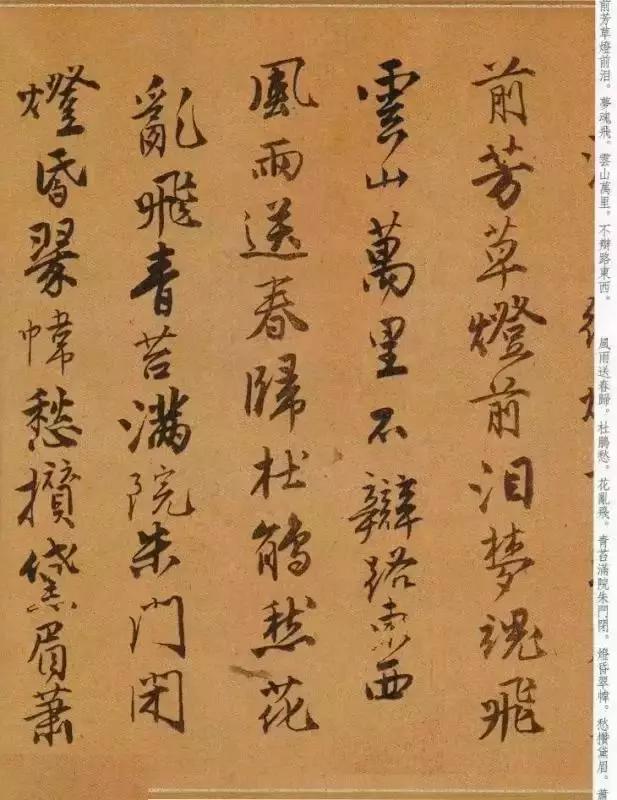 前芳草燈前泪夢魂飛
雲山萬里不辯路東西
風雨送春歸杜鵑愁花
亂飛青苔滿院朱門閉
燈昏翠幃愁攢黛眉蕭
前芳草燈前泪。夢魂飛。雲山萬里。不辯路東西。　風雨送春歸。杜鵑愁。花亂飛。青苔滿院朱門閉。燈昏翠幃。愁攢黛眉。蕭